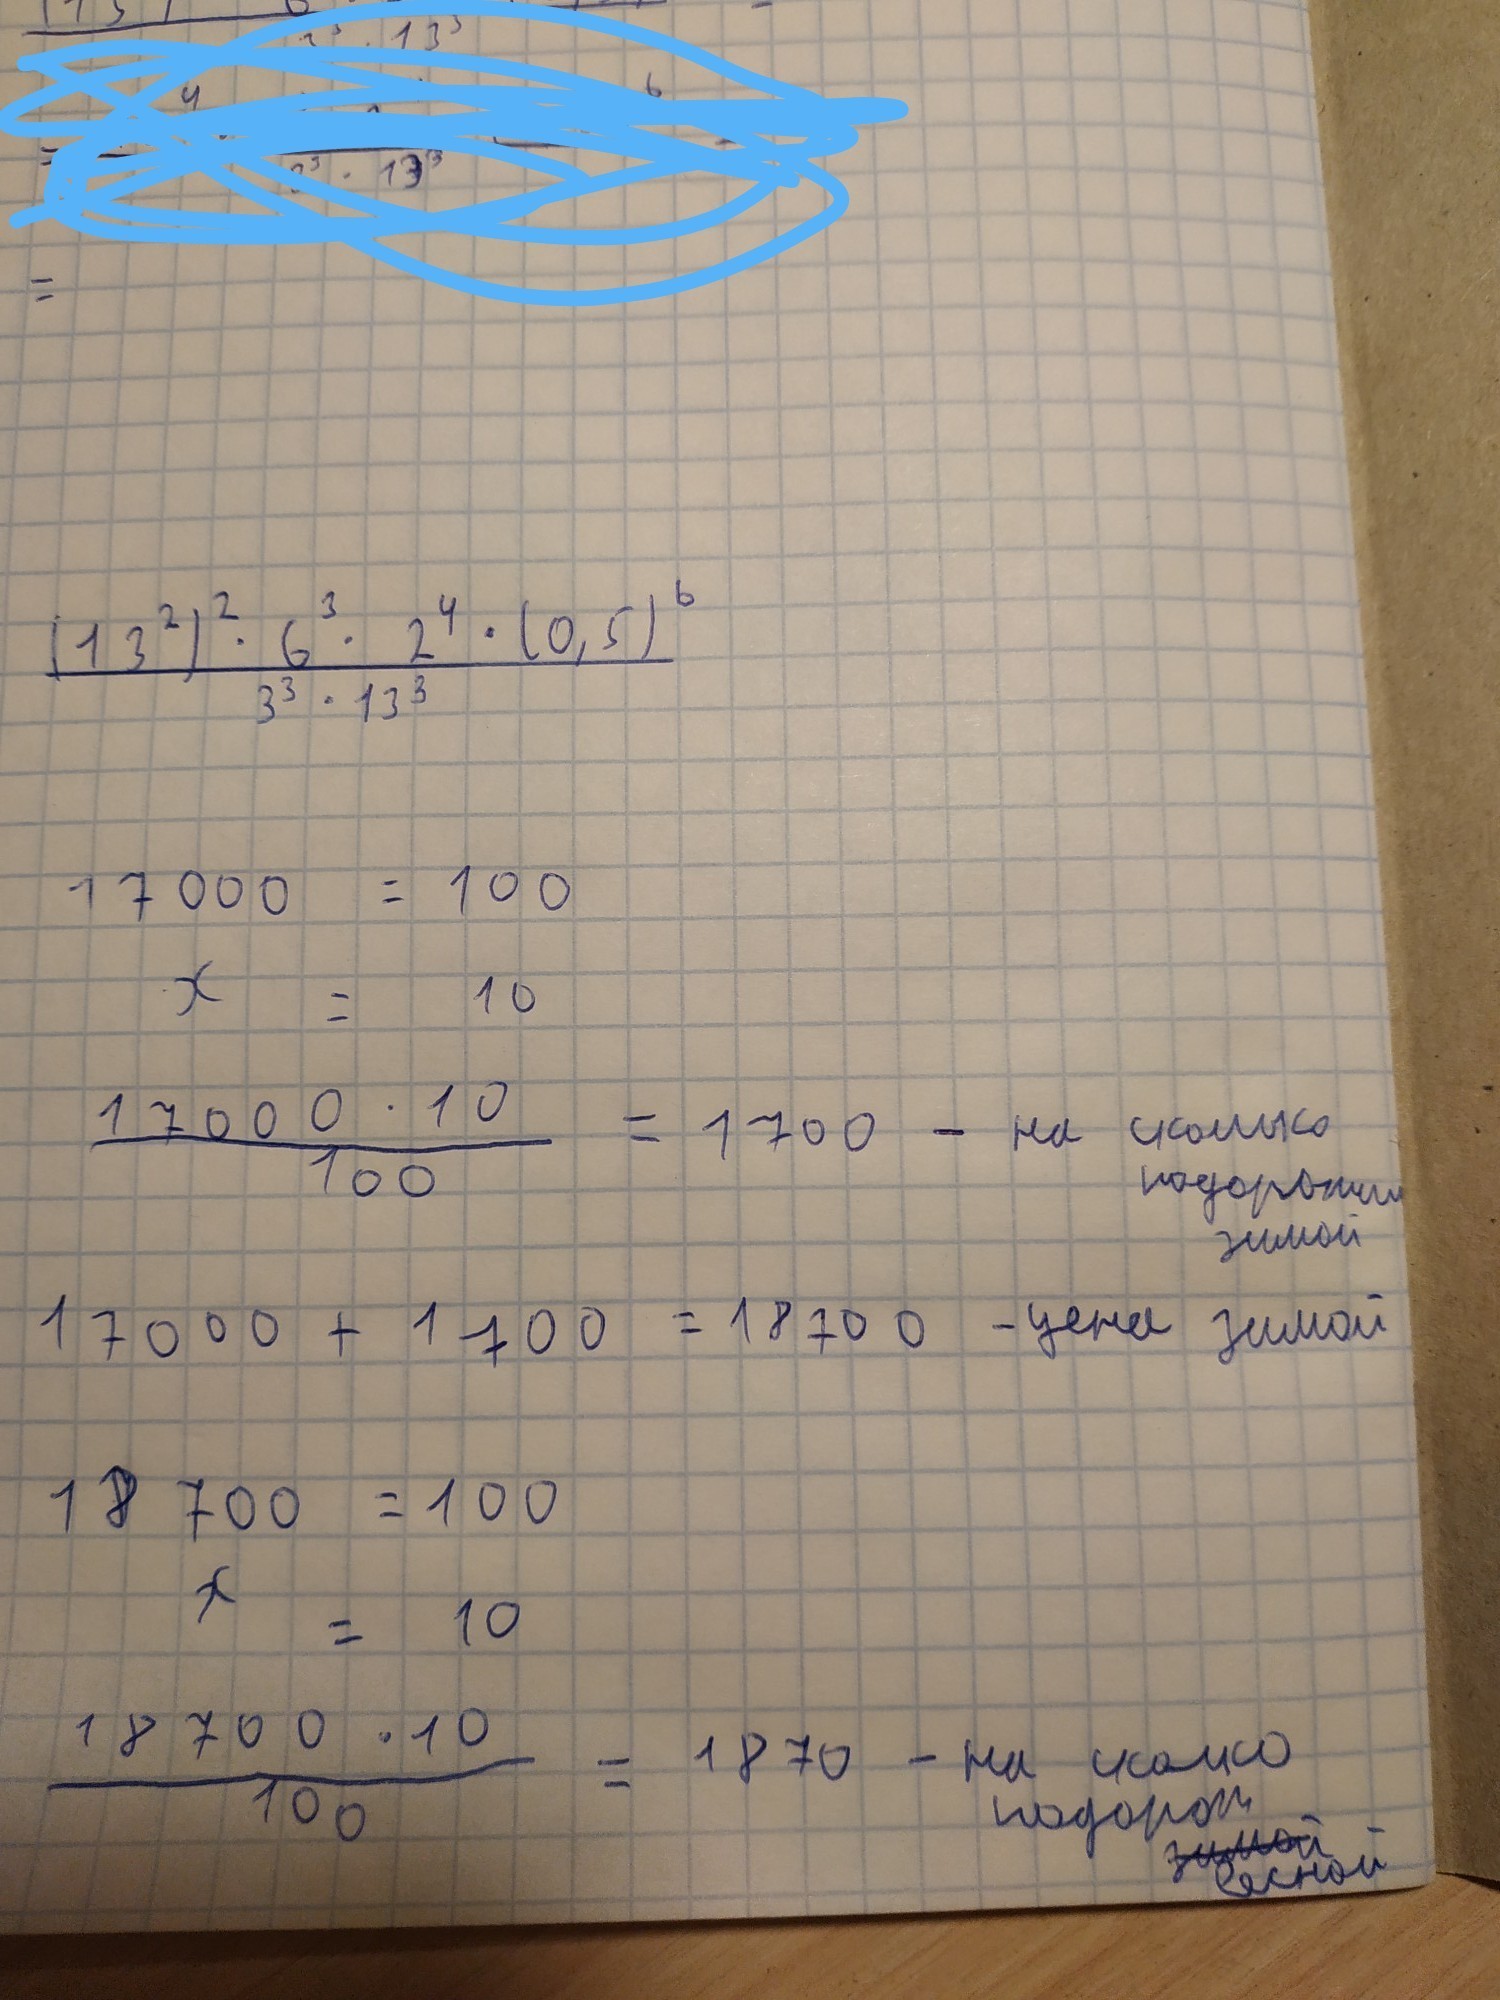 3³ · 13³
4 6
3³ · 13³
=
(13²)² · 6³ · 2⁴ · (0,5)⁶
3³ · 13³
17000 = 100
x = 10
17000 · 10
100
= 1700 - на сколько
подорожали
зимой
17000 + 1700 = 18700 - цена зимой
18700 = 100
x = 10
18700 · 10
100
= 1870 - на сколко
подорож
зимой
весной